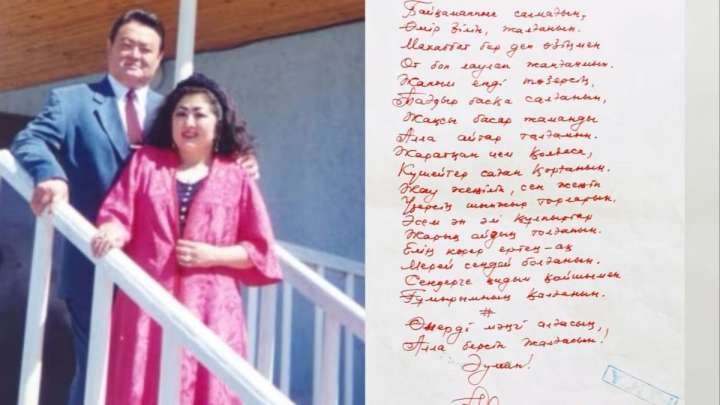 Байқамаппыз салмағын,
Өмір білін, жалғанын.
Махаббат бер деп өзіңмен
От боп лаулап жанғанмын.
Жалын енді төзерсің,
Тағдыр басқа салғанын,
Жақсы басар жаманды
Алла айтар таңдамын.
Жаратқан ием қолдаса,
Күшейтер саған қорғанын.
Жау жеңіліп, сен жеңіп
Үзерсің шынжыр торларын.
Әсем ән әлі құлпыртар
Жарық айдың толғанын.
Елің көрер ертең-ақ
Мерей сендей болғанын.
Сендерге қидым қайшымен
Ғұмырымның қалғанын.
#
Өнерді мәңгі алдасың,
Алла берсін жалғасын!
Әумин!